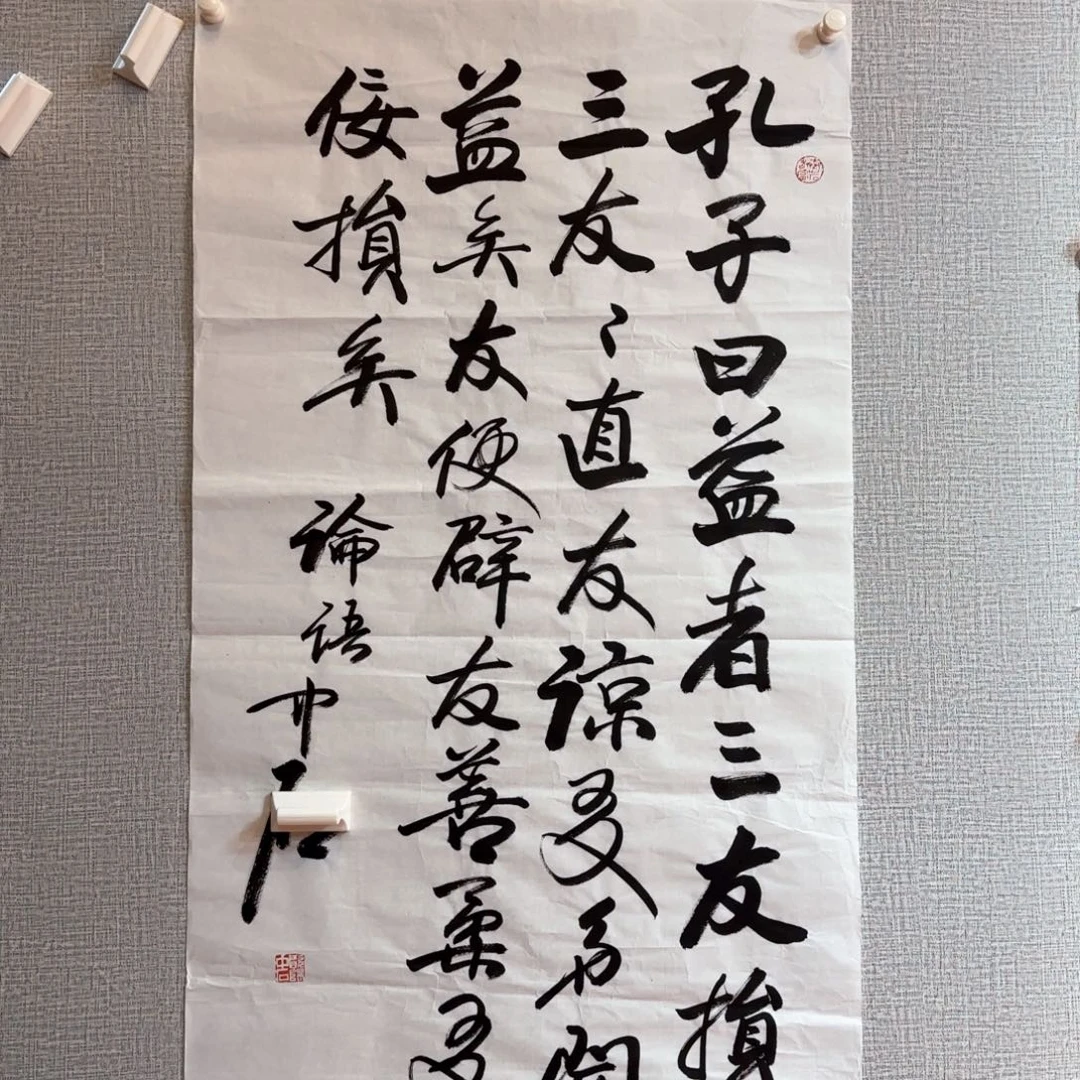 孔子曰益者三友損
三友〻直友諒友多聞
益矣友便辟友善柔友
佞損矣 論語 中石